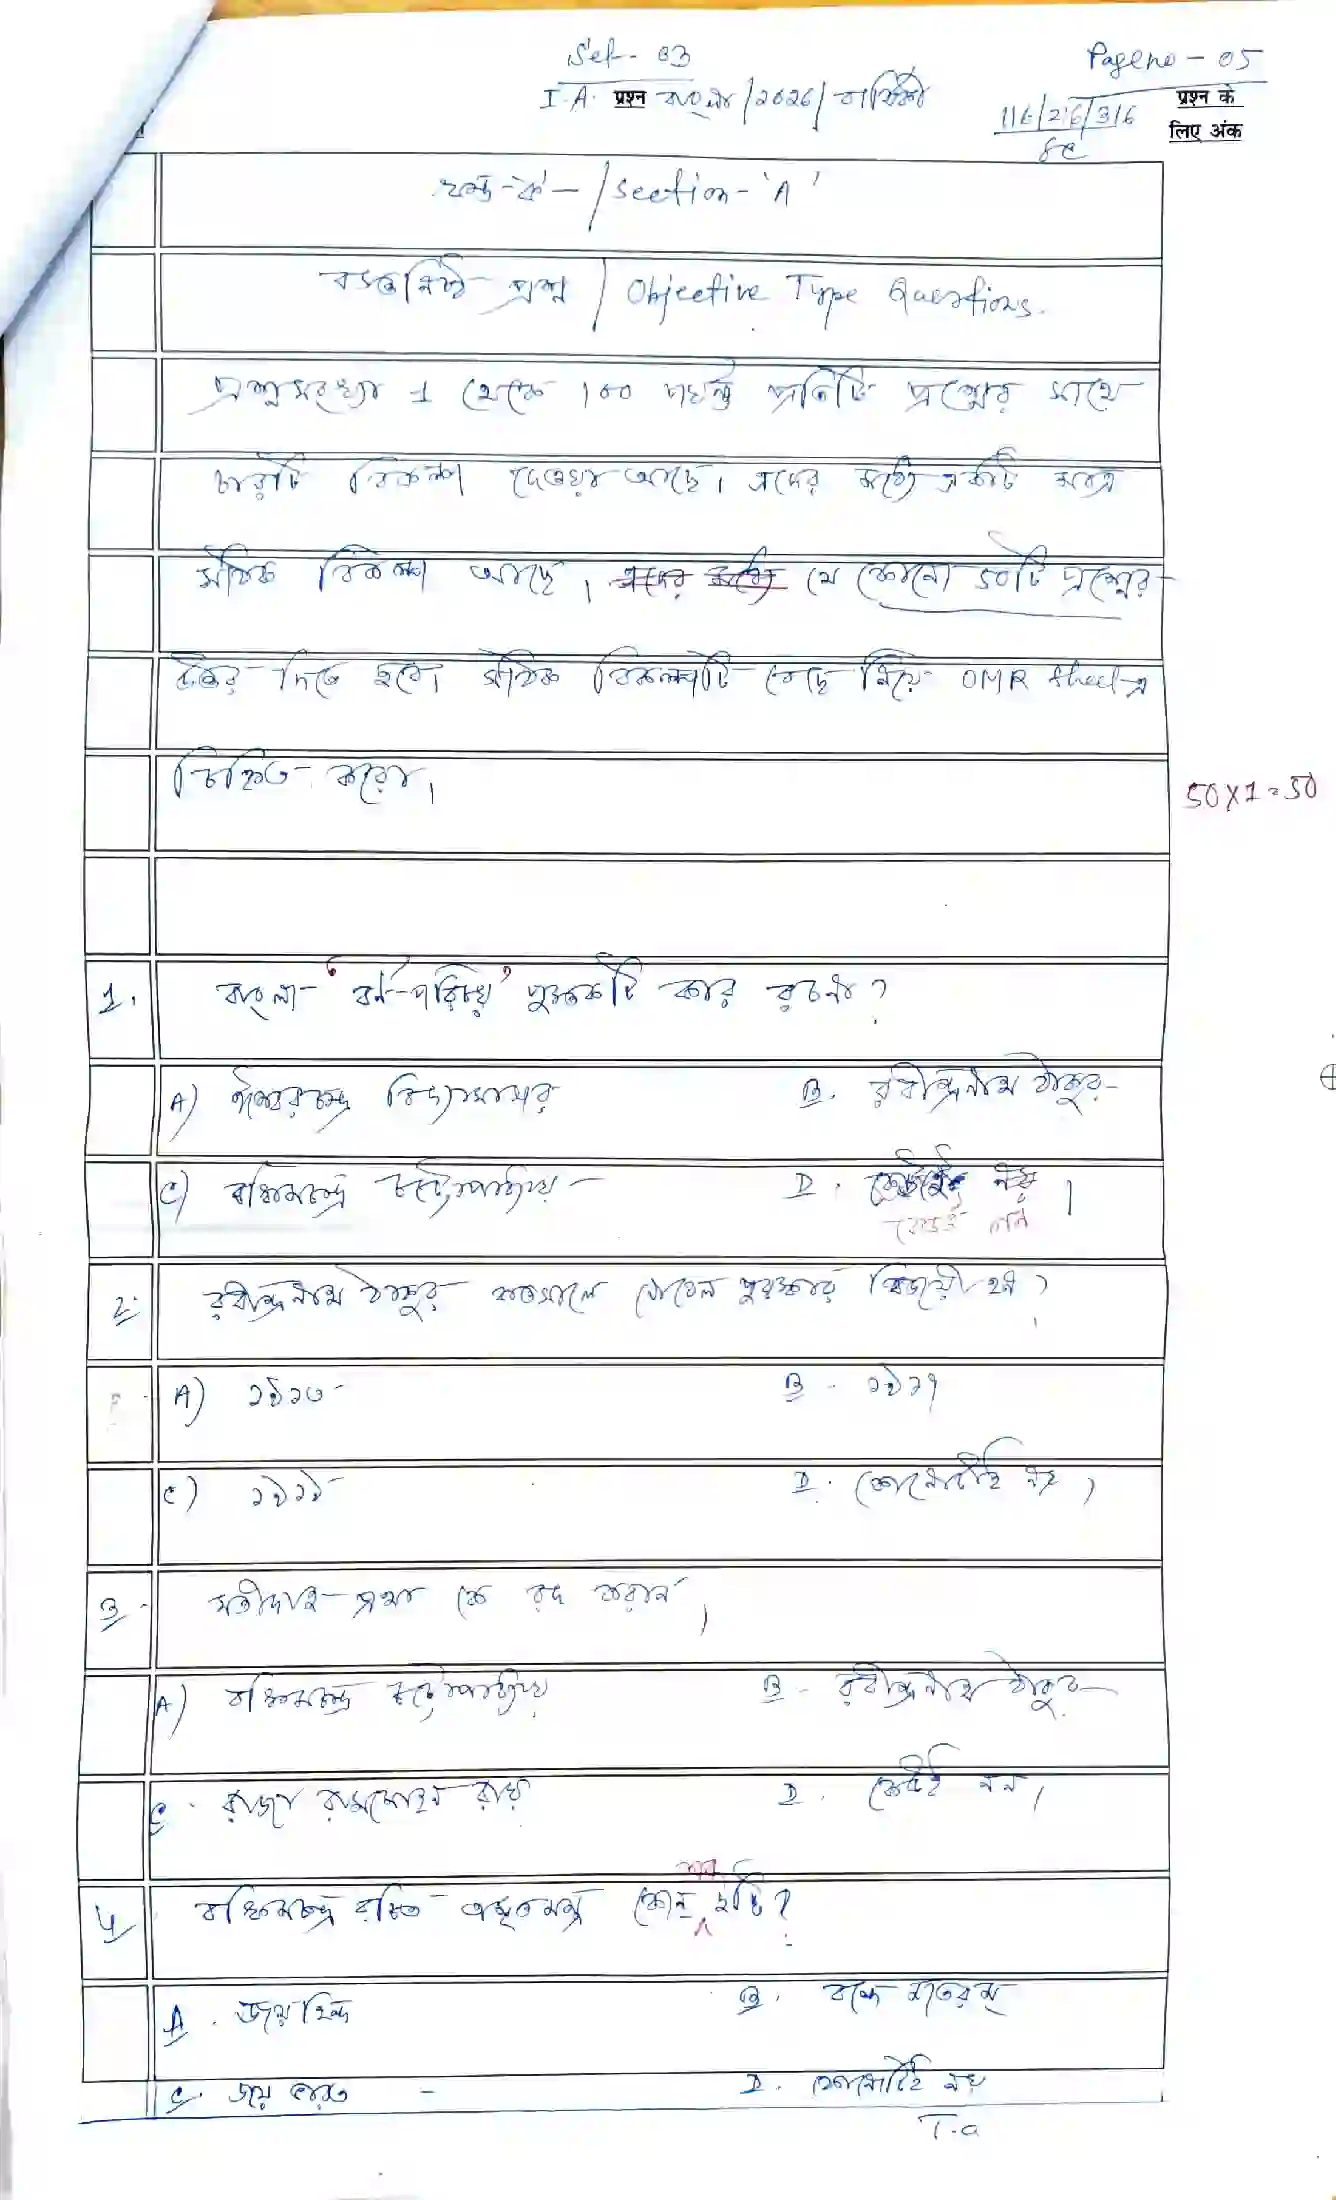 Set- 03
Page no - 05
I.A. प्रश्न বাংলা / 2026 / বার্ষিকী
116/216/316
प्रश्न के
लिए अंक
খন্ড-ক - / Section - 'A'
বস্তুনিষ্ঠ প্রশ্ন / Objective Type Questions.
প্রশ্নসংখ্যা 1 থেকে 100 পর্যন্ত প্রতিটি প্রশ্নের সাথে
চারটি বিকল্প দেওয়া আছে। এদের মধ্যে একটি মাত্র
সঠিক বিকল্প আছে। এদের মধ্যে যে কোনো ৫০টি প্রশ্নের
উত্তর দিতে হবে। সঠিক বিকল্পটি বেছে নিয়ে OMR sheet-এ
চিহ্নিত করো।
50x1=50
1. বাংলা 'বর্ণ-পরিচয়' পুস্তকটি কার রচনা?
A) ঈশ্বরচন্দ্র বিদ্যাসাগর B. রবীন্দ্রনাথ ঠাকুর
C) বঙ্কিমচন্দ্র চট্টোপাধ্যায় D. নয়।
কেউই নন
2. রবীন্দ্রনাথ ঠাকুর কতসালে নোবেল পুরস্কার বিজয়ী হন?
A) ১৯১৩ B. ১৯১৭
C) ১৯১৯ D. কোনোটিই নয়।
3. সতীদাহ প্রথা কে রদ করান।
A) বঙ্কিমচন্দ্র চট্টোপাধ্যায় B. রবীন্দ্রনাথ ঠাকুর
C. রাজা রামমোহন রায় D. কেউই নন।
4. বঙ্কিমচন্দ্র রচিত কোন টি?
A. জয় হিন্দ B. বন্দে মাতরম্
C. জয় ভারত - D. কোনোটিই নয়
T.O